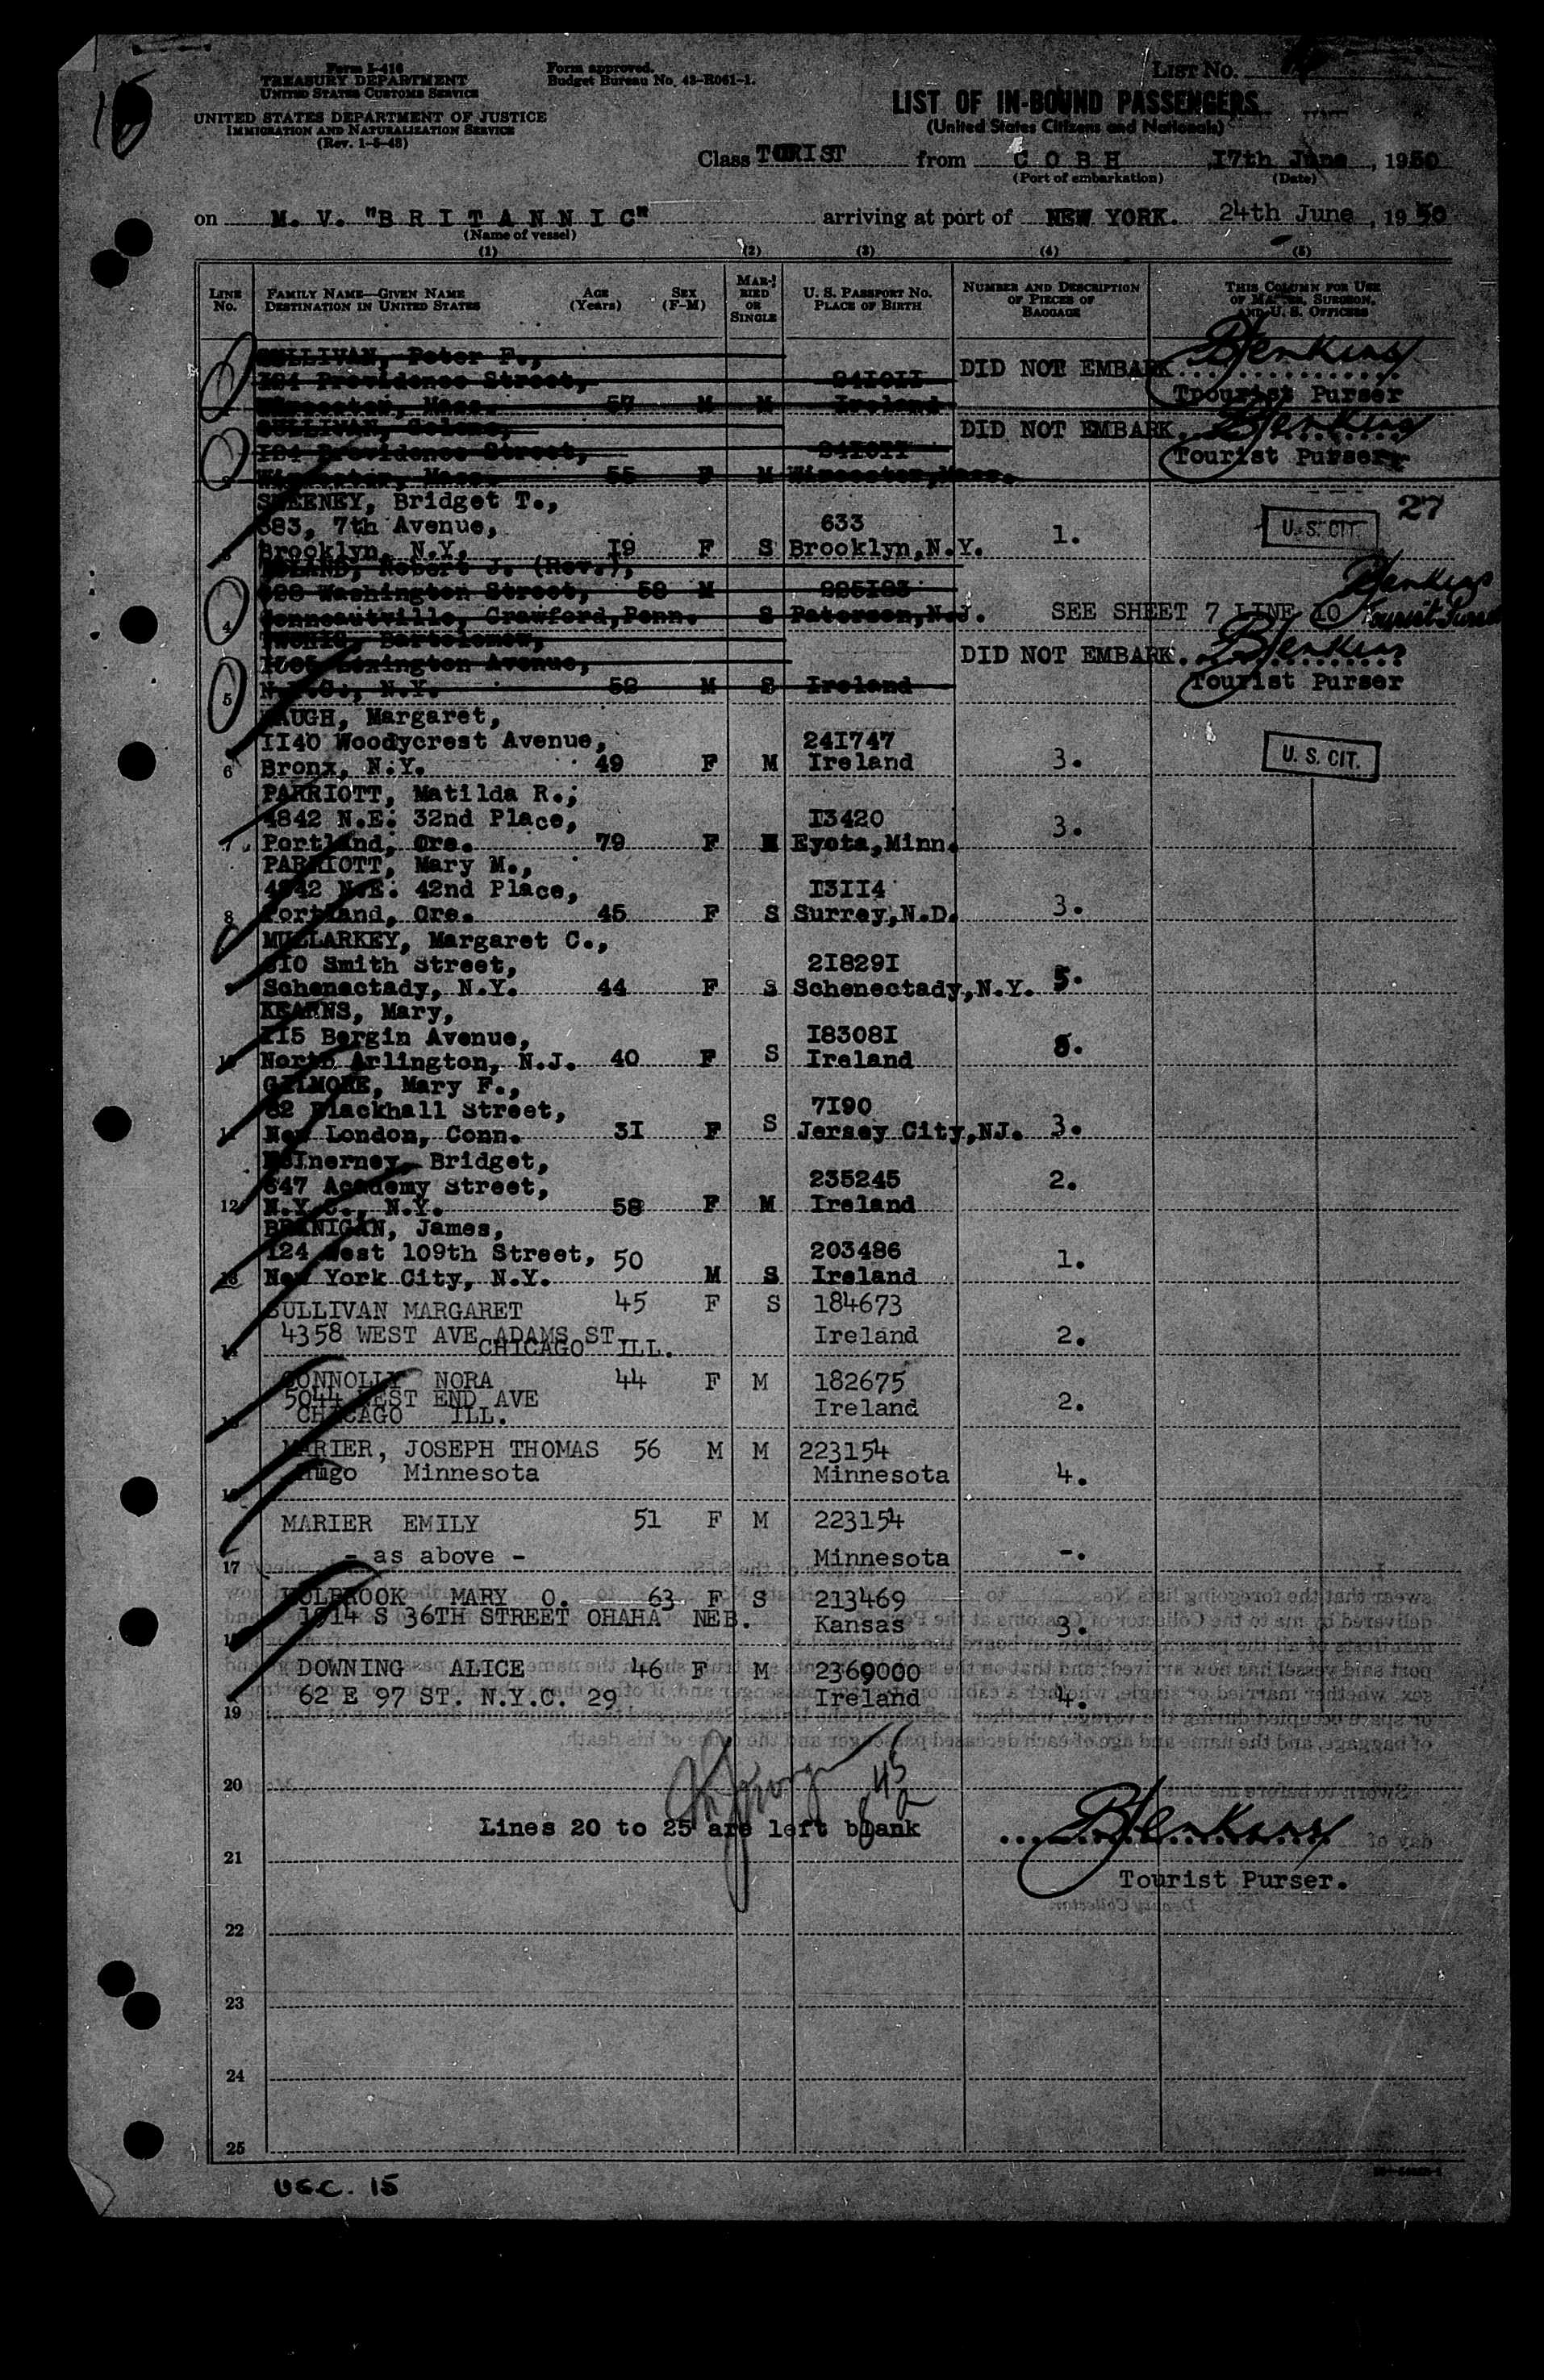 Form I-416
TREASURY DEPARTMENT
UNITED STATES CUSTOMS SERVICE
UNITED STATES DEPARTMENT OF JUSTICE
IMMIGRATION AND NATURALIZATION SERVICE
(Rev. 1-5-48)
Form approved.
Budget Bureau No. 43-R061-1.
LIST NO.
LIST OF IN-BOUND PASSENGERS
(United States Citizens and Nationals)
Class TOURIST from C O B H 17th June, 1950
(Port of embarkation) (Date)
on M. V. "B R I T A N N I C" arriving at port of NEW YORK. 24th June, 1950
(Name of vessel)
(1) (2) (3) (4) (5)
LINE No. FAMILY NAME—GIVEN NAME DESTINATION IN UNITED STATES AGE (Years) SEX (F-M) MARRIED OR SINGLE U. S. PASSPORT NO. PLACE OF BIRTH NUMBER AND DESCRIPTION OF PIECES OF BAGGAGE THIS COLUMN FOR USE OF MASTER, SURGEON, AND U. S. OFFICERS
SULLIVAN, Peter P.,
184 Providence Street, DID NOT EMBARK. BJenkins
Worcester, Mass. 57 M M Ireland Tpourist Purser
SULLIVAN, Selena, DID NOT EMBARK. BJenkins
184 Providence Street, Tourist Purser
55 F M Worcester, Mass.
SWEENEY, Bridget T., 27
383, 7th Avenue, 633 U.S. CIT.
3 Brooklyn, N.Y. 19 F S Brooklyn,N.Y. 1.
Robert J. (Rev.), BJenkins
Washington Street, 58 M
4 Conneautville, Crawford,Penn. S Paterson,N.J. SEE SHEET 7 LINE 10 Tourist Purser
Bartolomew,
Lexington Avenue, DID NOT EMBARK. BJenkins
5 N.Y.C., N.Y. 52 M S Ireland Tourist Purser
WAUGH, Margaret,
1140 Woodycrest Avenue, 241747 U. S. CIT.
6 Bronx, N.Y. 49 F M Ireland 3.
PARRIOTT, Matilda R.,
4842 N.E. 32nd Place, 13420
7 Portland, Ore. 79 F M Eyota,Minn. 3.
PARRIOTT, Mary M.,
4842 N.E. 42nd Place, 13114
8 Portland, Ore. 45 F S Surrey,N.D. 3.
MULLARKEY, Margaret C.,
810 Smith Street, 218291
9 Schenectady, N.Y. 44 F S Schenectady,N.Y. 5.
KEARNS, Mary,
115 Bergin Avenue, 183081
10 North Arlington, N.J. 40 F S Ireland 5.
GILMORE, Mary F.,
62 Blackhall Street, 7190
11 New London, Conn. 31 F S Jersey City,NJ. 3.
McInerney, Bridget,
647 Academy Street, 235245 2.
12 N.Y.C., N.Y. 58 F M Ireland
BRANIGAN, James,
124 West 109th Street, 50 203486
13 New York City, N.Y. M S Ireland 1.
SULLIVAN MARGARET 45 F S 184673
4358 WEST AVE ADAMS ST Ireland 2.
14 CHICAGO ILL.
CONNOLLY NORA 44 F M 182675
5044 WEST END AVE Ireland 2.
15 CHICAGO ILL.
MARIER, JOSEPH THOMAS 56 M M 223154
16 Hugo Minnesota Minnesota 4.
MARIER EMILY 51 F M 223154
17 - as above - Minnesota -.
HOLBROOK MARY O. 63 F S 213469
18 1914 S 36TH STREET OHAHA NEB. Kansas 3.
DOWNING ALICE 46 F M 2369000
19 62 E 97 ST. N.Y.C. 29 Ireland 4.
20
Lines 20 to 25 are left blank BJenkins
21
Tourist Purser.
22
23
24
25
USC. 15